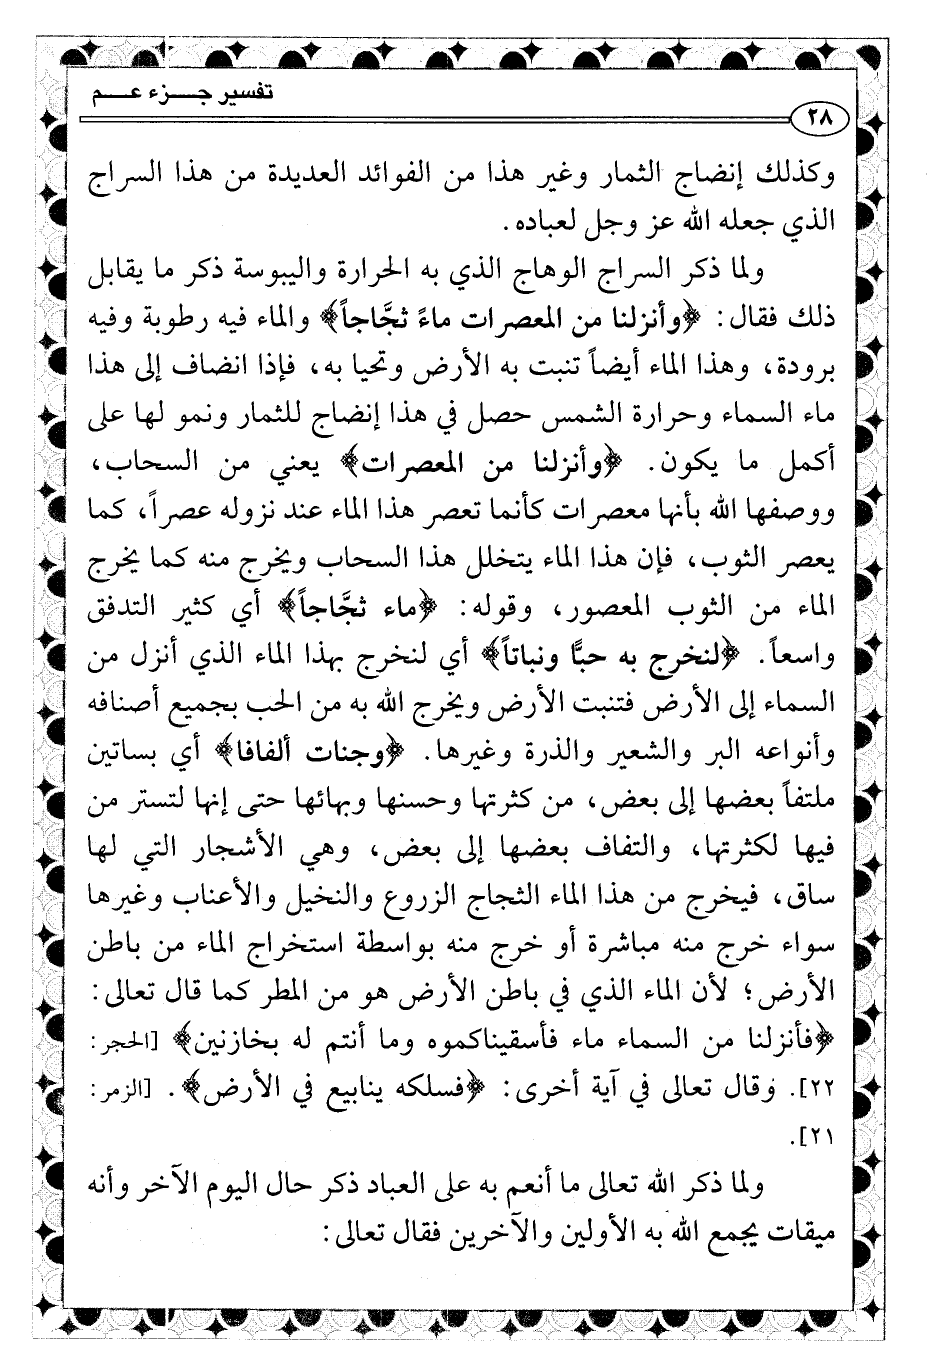 تفسير جـــزء عـــم
٢٨
وكذلك إنضاج الثمار وغير هذا من الفوائد العديدة من هذا السراج
الذي جعله الله عز وجل لعباده.
ولما ذكر السراج الوهاج الذي به الحرارة واليبوسة ذكر ما يقابل
ذلك فقال: ﴿وأنزلنا من المعصرات ماءً ثجَّاجاً﴾ والماء فيه رطوبة وفيه
برودة، وهذا الماء أيضاً تنبت به الأرض وتحيا به، فإذا انضاف إلى هذا
ماء السماء وحرارة الشمس حصل في هذا إنضاج للثمار ونمو لها على
أكمل ما يكون. ﴿وأنزلنا من المعصرات﴾ يعني من السحاب،
ووصفها الله بأنها معصرات كأنما تعصر هذا الماء عند نزوله عصراً، كما
يعصر الثوب، فإن هذا الماء يتخلل هذا السحاب ويخرج منه كما يخرج
الماء من الثوب المعصور، وقوله: ﴿ماء ثجَّاجاً﴾ أي كثير التدفق
واسعاً. ﴿لنخرج به حبًّا ونباتاً﴾ أي لنخرج بهذا الماء الذي أنزل من
السماء إلى الأرض فتنبت الأرض ويخرج الله به من الحب بجميع أصنافه
وأنواعه البر والشعير والذرة وغيرها. ﴿وجنات ألفافا﴾ أي بساتين
ملتفاً بعضها إلى بعض، من كثرتها وحسنها وبهائها حتى إنها لتستر من
فيها لكثرتها، والتفاف بعضها إلى بعض، وهي الأشجار التي لها
ساق، فيخرج من هذا الماء الثجاج الزروع والنخيل والأعناب وغيرها
سواء خرج منه مباشرة أو خرج منه بواسطة استخراج الماء من باطن
الأرض؛ لأن الماء الذي في باطن الأرض هو من المطر كما قال تعالى:
﴿فأنزلنا من السماء ماء فأسقيناكموه وما أنتم له بخازنين﴾ [الحجر:
٢٢]. وقال تعالى في آية أخرى: ﴿فسلكه ينابيع في الأرض﴾. [الزمر:
٢١].
ولما ذكر الله تعالى ما أنعم به على العباد ذكر حال اليوم الآخر وأنه
ميقات يجمع الله به الأولين والآخرين فقال تعالى: